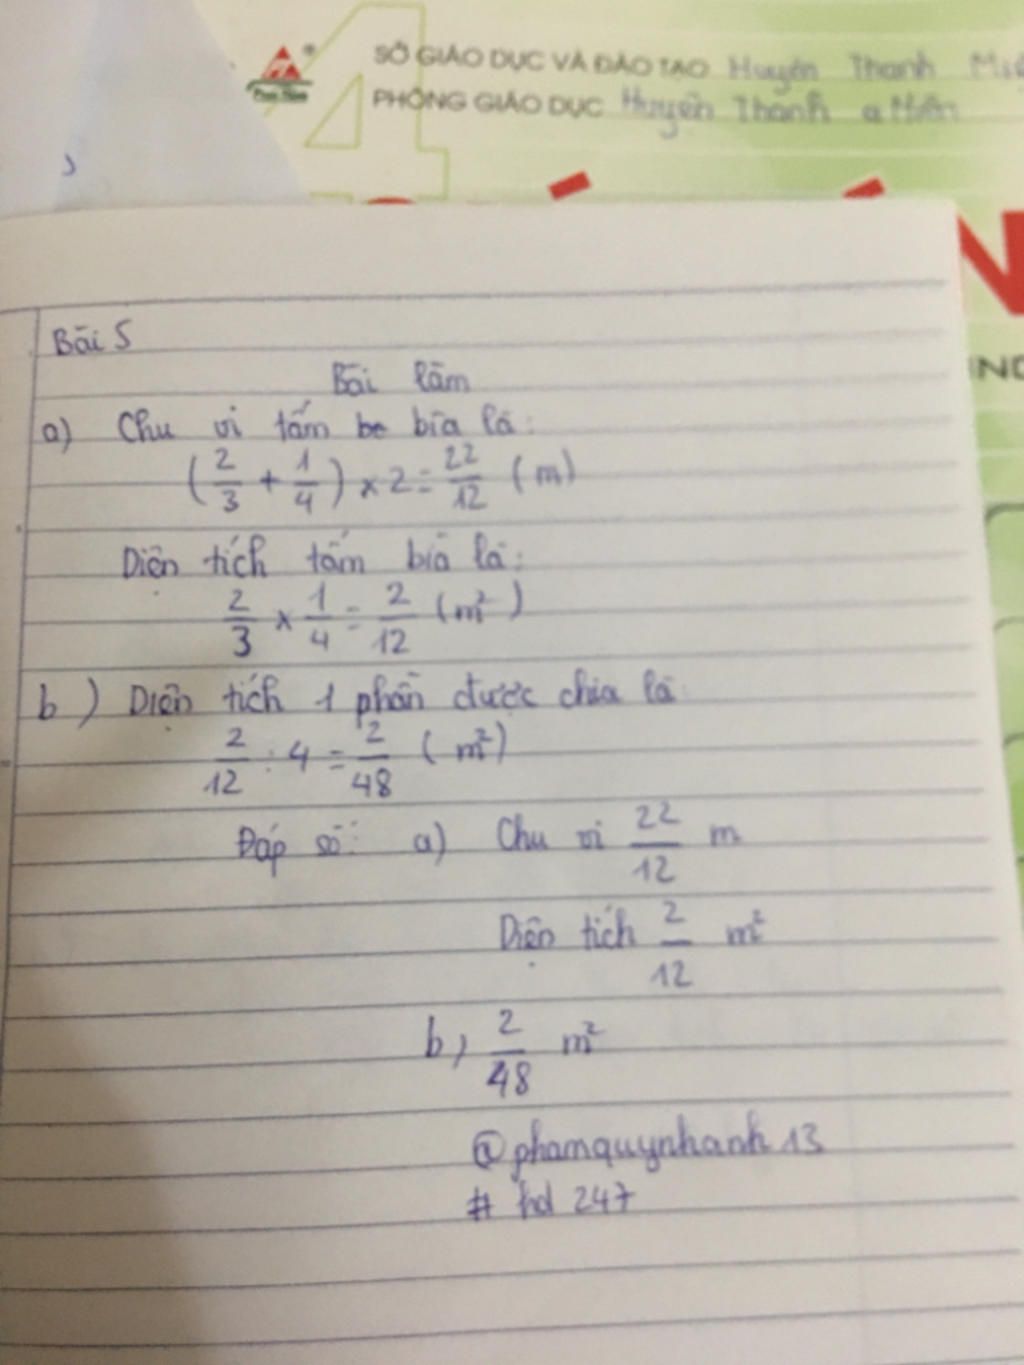 SỞ GIÁO DỤC VÀ ĐÀO TẠO Huyện Thanh
PHÒNG GIÁO DỤC Huyện Thanh a Miện
Bài 5
Bài làm
a) Chu vi tấm be bìa là:
(2/3 + 1/4) x 2 = 22/12 (m)
Diện tích tấm bìa là:
2/3 x 1/4 = 2/12 (m²)
b) Diện tích 1 phần được chia là
2/12 : 4 = 2/48 (m²)
Đáp số: a) Chu vi 22/12 m
Diện tích 2/12 m²
b) 2/48 m²
@phamquynhanh13
# hd 247